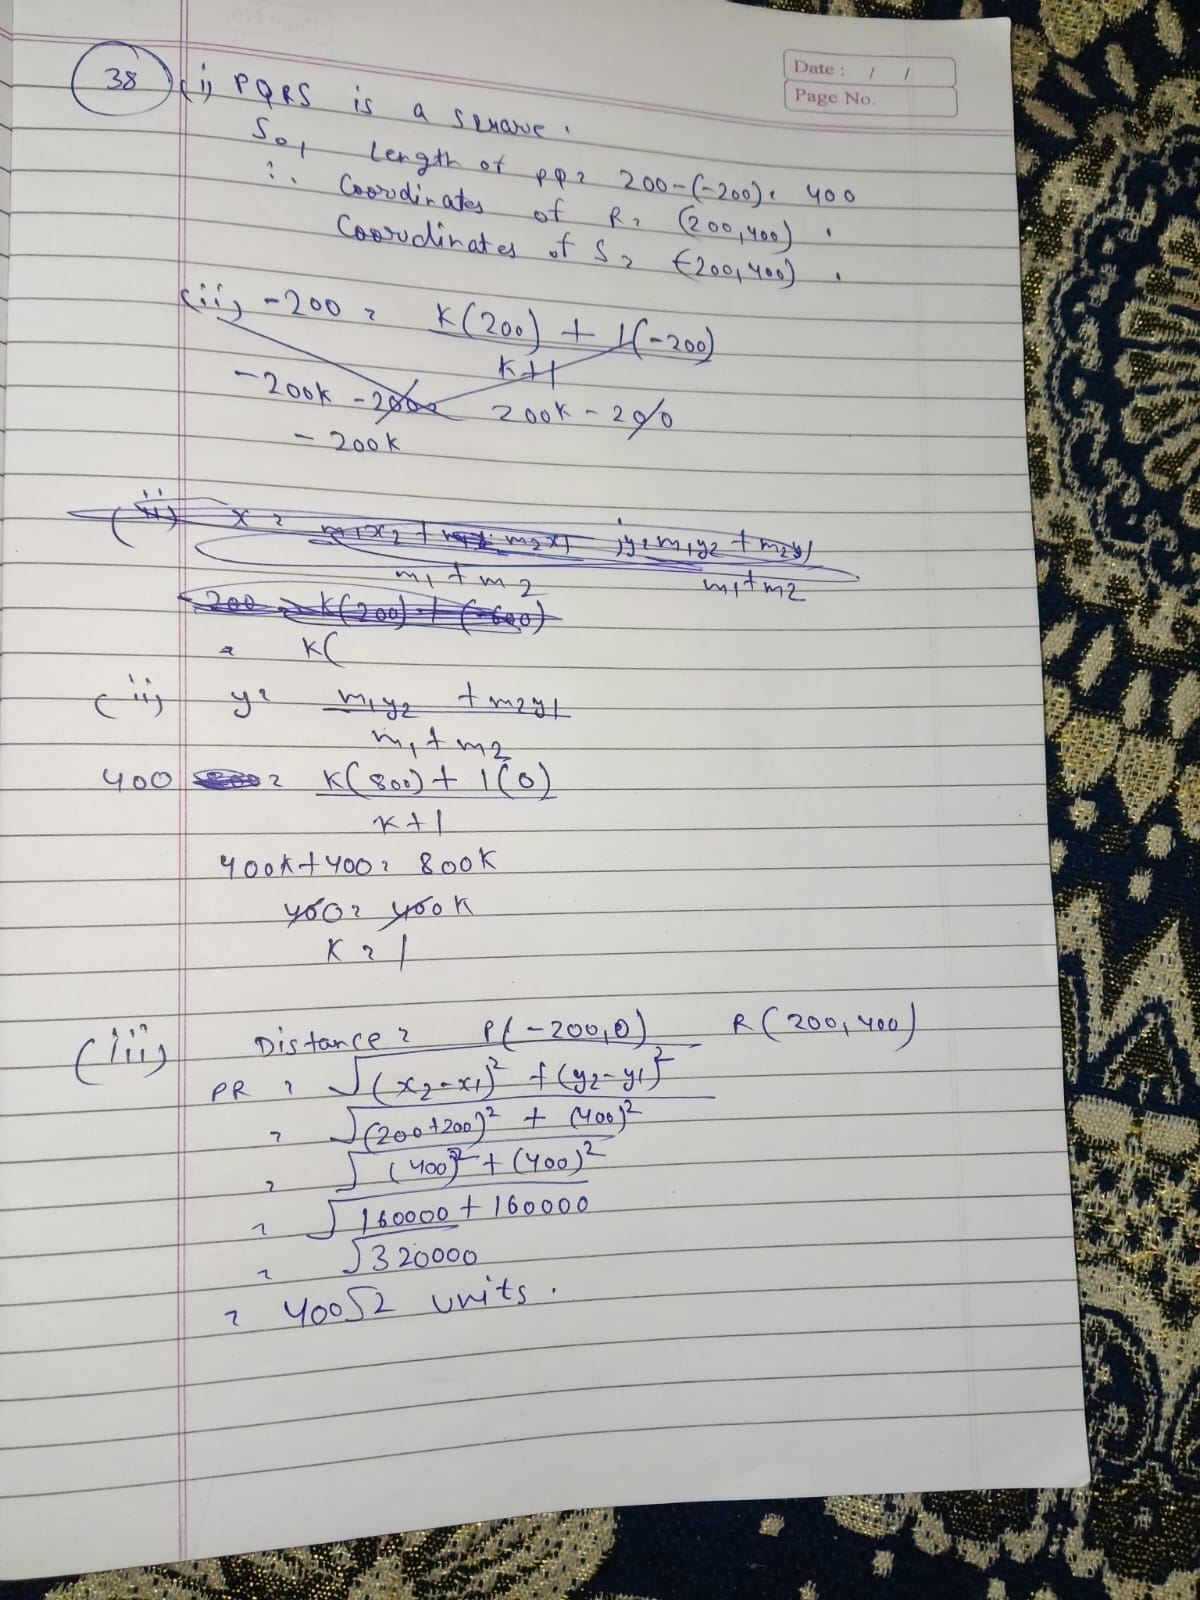 Date : / /
Page No.
38 (i) PQRS is a square.
So, Length of PQ = 200-(-200) = 400
∴ Coordinates of R = (200,400).
Coordinates of S = (-200,400).
(ii) -200 = K(200) + 1(-200)
K+1
-200K - 200 = 200K - 200
- 200K
(ii) x = m1x2 + m2x1 ; y = m1y2 + m2y1
m1 + m2 m1+m2
200 = K(200) +
= K(
(ii) y = m1y2 + m2y1
m1 + m2
400 = K(800) + 1(0)
K+1
400K+400 = 800K
400 = 400K
K = 1
(iii) Distance = P(-200,0) R(200,400)
PR = √(x2-x1)² + (y2-y1)²
= √(200+200)² + (400)²
= √(400)² + (400)²
= √160000 + 160000
= √320000
= 400√2 units.